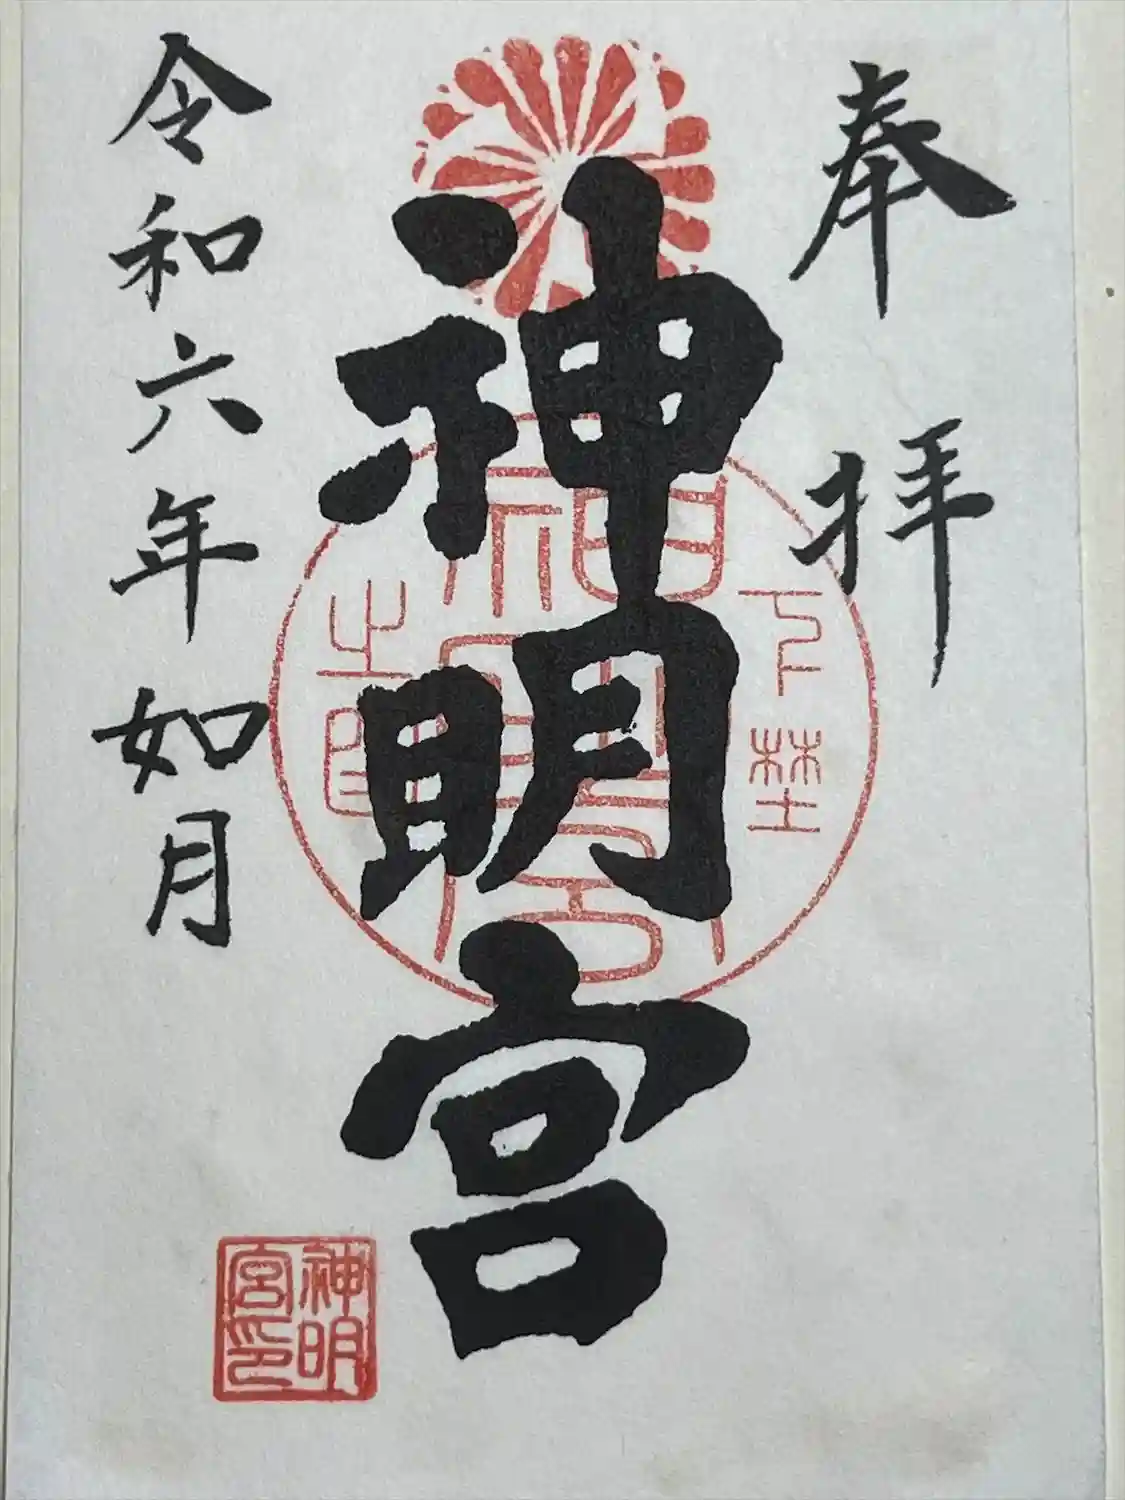 奉拝
神明宮
下埜
之印
神明宮
令和六年如月
神明宮印